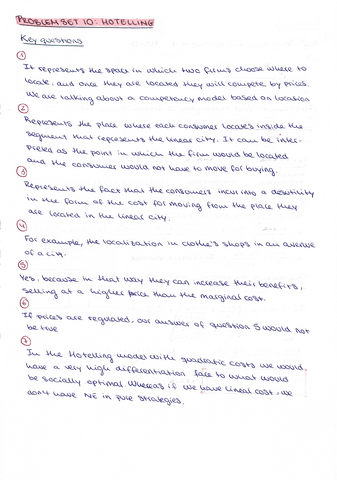 PROBLEM SET 10: HOTELLING
Key questions
1
It represents the space in which two firms choose where to
locate, and once they are located they will compete by prices.
We are talking about a competency model based on location
2
Represents the place where each consumer locates inside the
segment that represents the linear city. It can be inter-
preted as the point in which the firm would be located
and the consumer would not have to move for buying.
3
Represents the fact that the consumers incur into a desutility
in the form of the cost for moving from the place they
are located in the linear city.
4
For example, the localization in clothe's shops in an avenue
of a city.
5
Yes, because in that way they can increase their benefits,
selling at a higher price than the marginal cost.
6
If prices are regulated, our answer of question 5 would not
be true
7
In the Hotelling model with quadratic costs we would
have a very high differentiation face to what would
be socially optimal. Whereas if we have lineal cost, we
don't have NE in pure strategies.